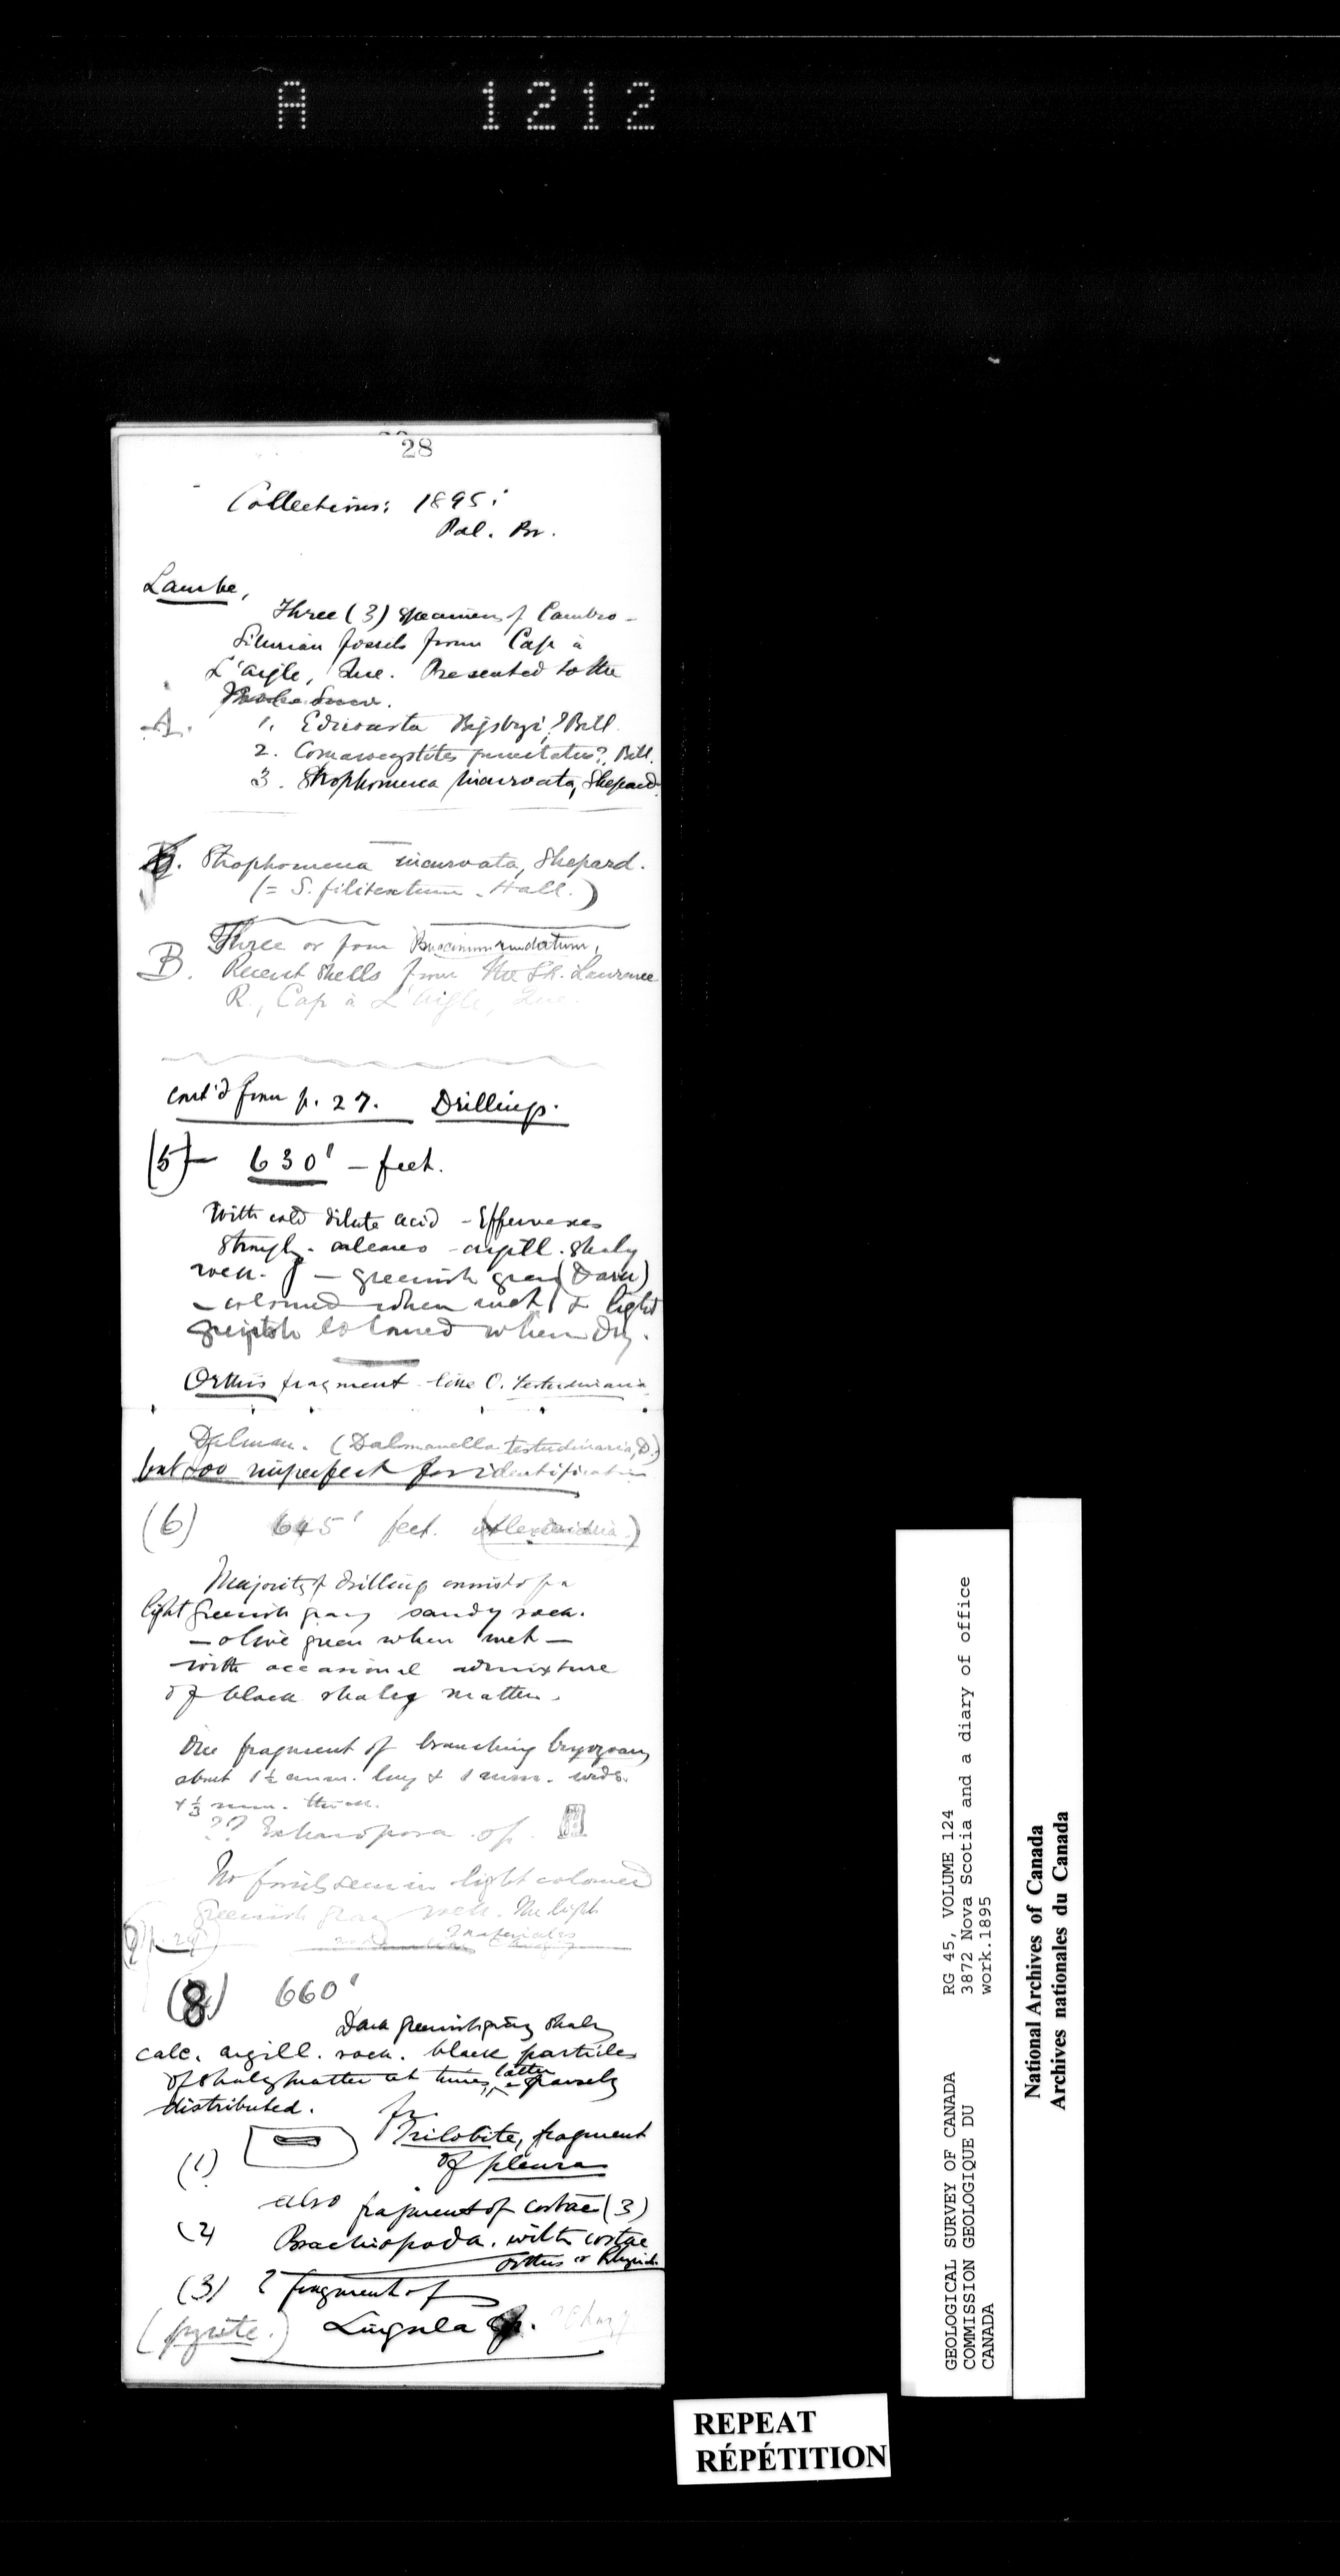 A 1212
28
Collections: 1895:
Pal. Br.
Lambe,
Three (3) specimens of Cambro-
Silurian fossils from Cap à
L'aigle, Que. Presented to the
A. 1. Edrioaster Bigsbyi, ? Bill.
2. Comarocystites punctatus?, Bill.
3. Strophomena incurvata, Shepard.
Strophomena incurvata, Shepard.
(= S. filitextum - Hall.)
Three or four Buccinum undatum,
B. Recent shells from the St. Lawrence
R., Cap à L'Aigle, Que.
cont'd from p. 27. Drillings.
(5) - 630' - feet.
With cold dilute acid - Effervesces
strongly - calcareo - argill. shaly
rock. - greenish gray (Dark)
- coloured when wet & light
greyish coloured when dry.
Orthis fragment like O. testudinaria
Dalman. (Dalmanella testudinaria, D.)
but too imperfect for identification
(6) 645' feet.
Majority of drillings consist of a
light greenish gray sandy rock.
- olive green when wet -
with occasional admixture
of black shaley matter.
One fragment of branching bryozoan
about 1½ mm. long & 1 mm. wide
& ⅓ mm. thick.
?? Escharopora sp.
No fossils seen in light coloured
greenish gray rock. The light
materials
(8) 660'
Dark greenish gray shaly
calc. argill. rock. black particles
of shaly matter at times, latter sparsely
distributed.
(1) Trilobite, fragment
of pleura
also fragment of costae (3)
(2) Brachiopoda. with costae
Orthis or Rhynch.
(3) ? fragment of
(pyrite.) Lingula sp.
GEOLOGICAL SURVEY OF CANADA
COMMISSION GEOLOGIQUE DU
CANADA
RG 45, VOLUME 124
3872 Nova Scotia and a diary of office
work.1895
National Archives of Canada
Archives nationales du Canada
REPEAT
RÉPÉTITION